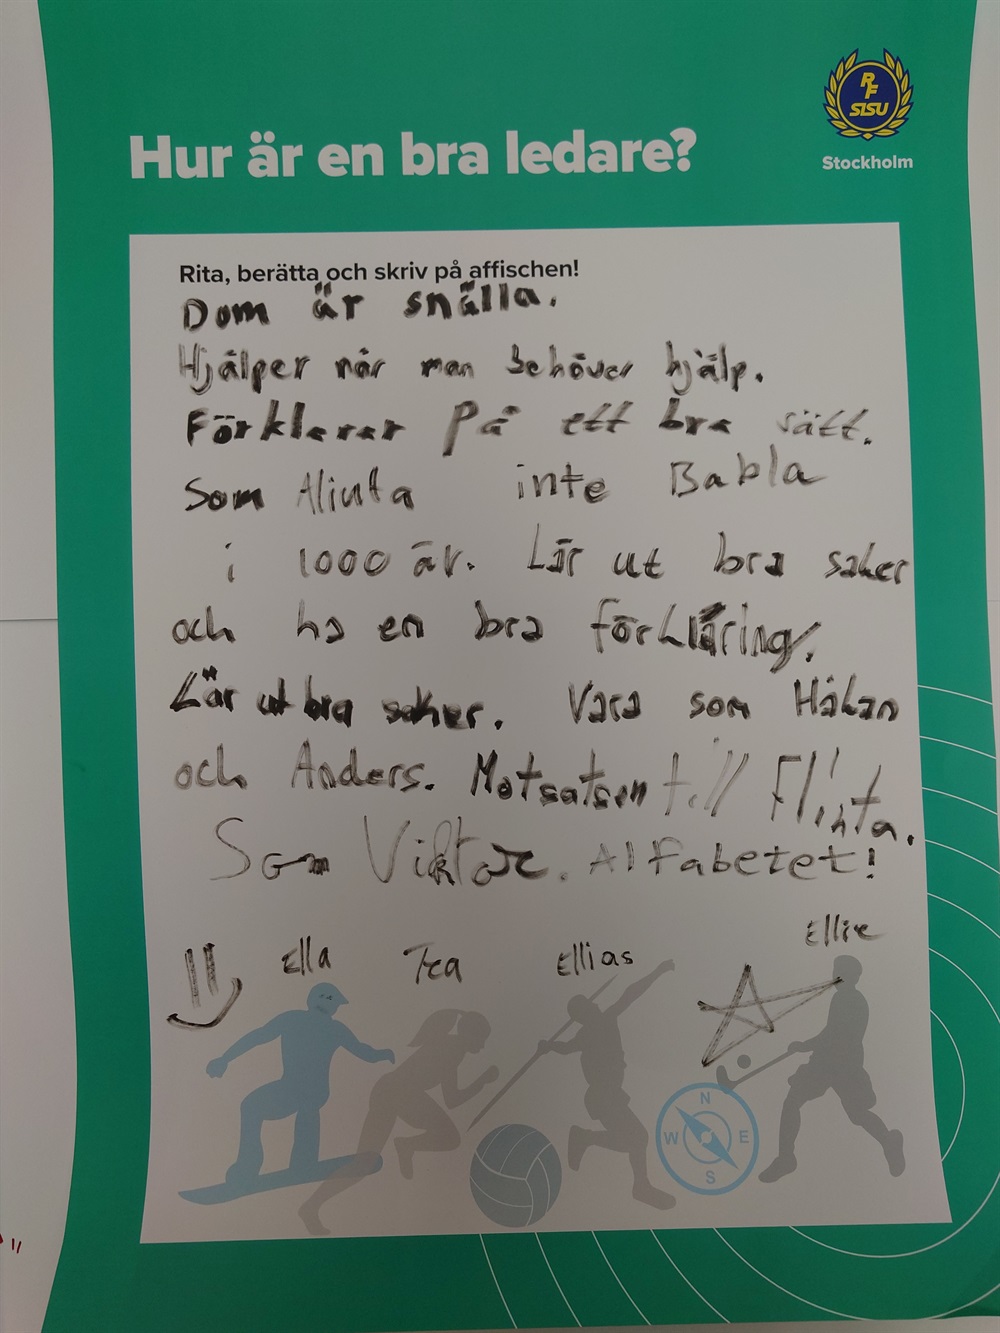 RF
SISU
Stockholm
Hur är en bra ledare?
Rita, berätta och skriv på affischen!
Dom är snälla.
Hjälper når man behöver hjälp.
Förklarar på ett bra sätt.
Som Aliuta inte Babla
i 1000 år. Lär ut bra saker
och ha en bra förkläring.
Lär ut bra saker. Vara som Håkan
och Anders. Motsatsen till Flinta.
Som Viktor. Alfabetet!
Ella Tea Ellias Ellie
N
W E
S